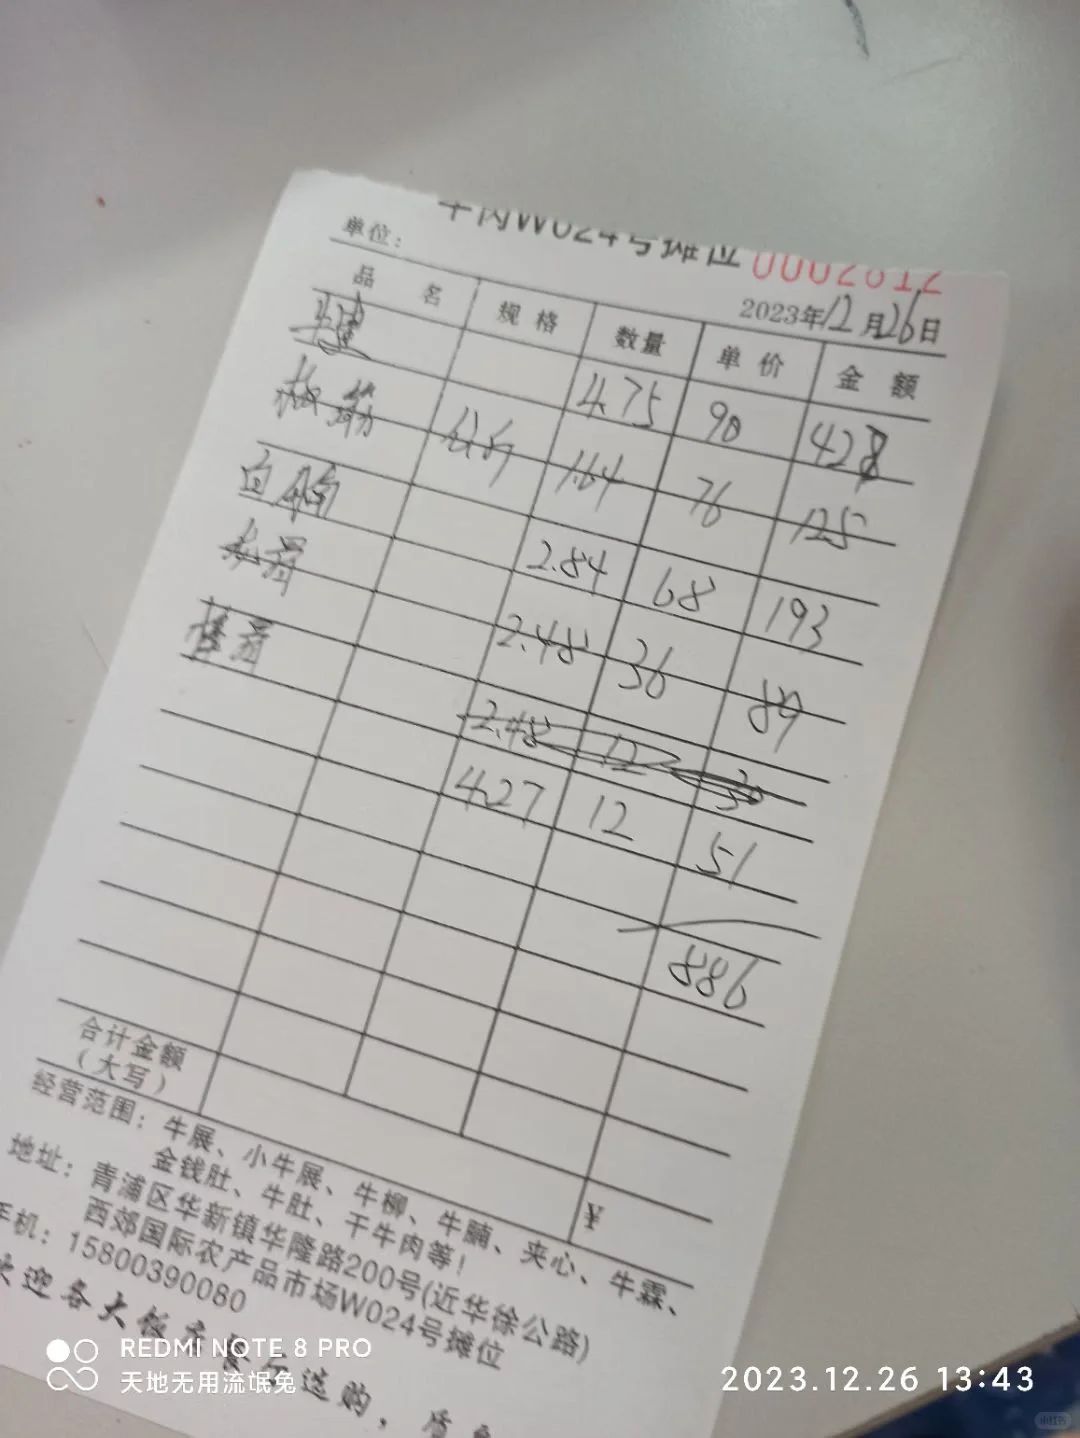 牛肉W024号摊位 0002812
单位：
2023年12月26日
品名 规格 数量 单价 金额
牛建 4.75 90 428
板筋 1.64 76 125
白腩 2.84 68 193
2.48 36 89
2.48 12 30
4.27 12 51
886
合计金额
（大写） ¥
经营范围：牛展、小牛展、牛柳、牛腩、夹心、牛霖、
金钱肚、牛肚、干牛肉等！
地址：青浦区华新镇华隆路200号(近华徐公路)
西郊国际农产品市场W024号摊位
手机：15800390080
欢迎各大饭店 选购，质
REDMI NOTE 8 PRO
天地无用流氓兔
2023.12.26 13:43
小红书